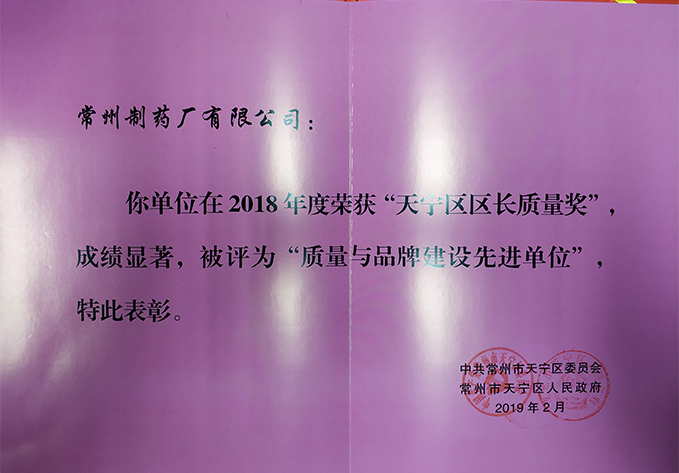 常州制药厂有限公司：
你单位在2018年度荣获“天宁区区长质量奖”，
成绩显著，被评为“质量与品牌建设先进单位”，
特此表彰。
中共常州市天宁区委员会
常州市天宁区人民政府
2019年2月